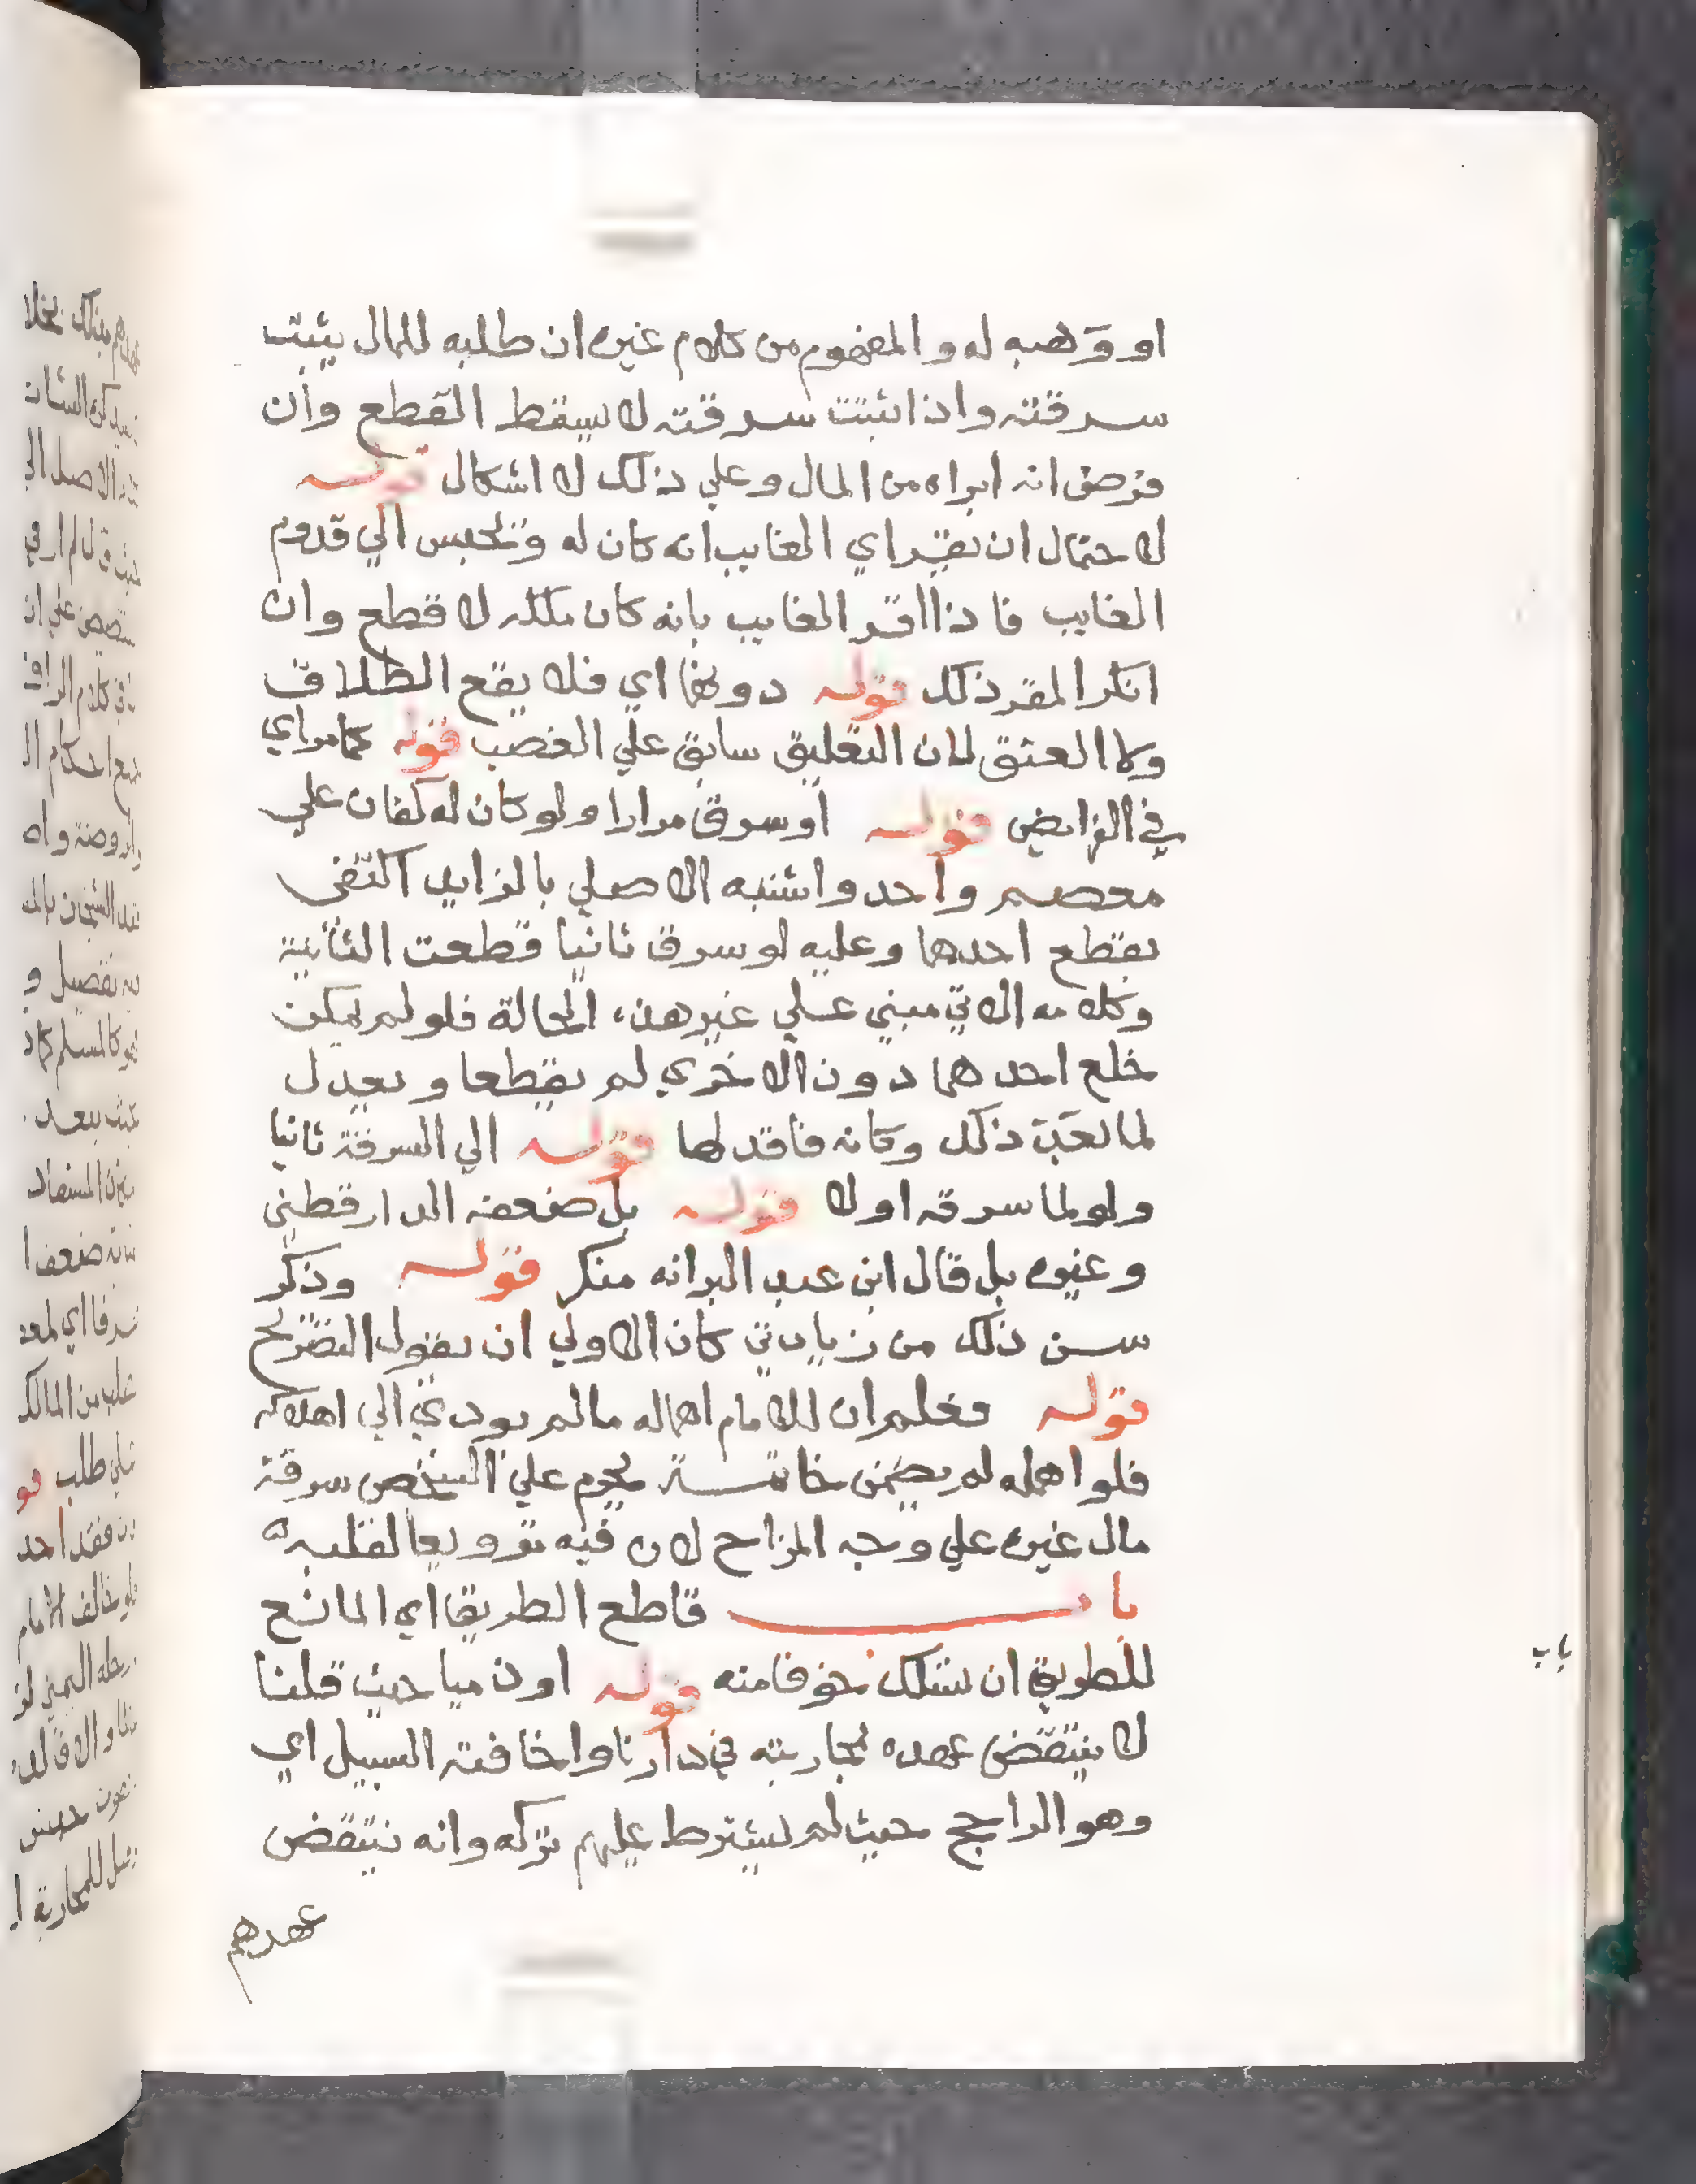 او وَهبه له والمفهوم من كلام غيره ان طلبه للمال يثبت
سرقته واذا ثبتت سرقته لا يسقط القطع وان
فرض انه ابراه من المال وعلي ذلك لا اشكال قوله
لاحتمال ان يقر اي الغايب انه كان له ويحبس الي قدوم
الغايب فاذا اقر الغايب بانه كان ملكه لا قطع وان
انكر المقر ذلك قوله دونها اي فلا يقع الطلاق
ولا العتق لان التعليق سابق علي الغصب قوله كما مر اي
في الفرايض قوله او سرق مرارا ولو كان له كفان علي
معصم واحد واشتبه الاصلي بالزايد اكتفي
بقطع احدها وعليه لو سرق ثانيا قطعت الثانية
وكلامه الاتي مبني علي غير هذه الحالة فلو لم يمكن
خلع احدهما دون الاخري لم يقطعا ويعدل
لما بعَد ذلك وكانه فاقد لها قوله الي السرقة ثانيا
ولو لما سرقه اولا قوله بل ضعفه الدارقطني
وغيره بل قال ابن عبد البر انه منكر قوله وذكر
سن ذلك من زيادتي كان الاولي ان يقول التصريح
قوله فعلم ان للامام اهماله ما لم يودي الي اهلاكه
فلو اهمله لم يضمن خاتمة يحرم علي الشخص سرقة
مال غيره علي وجه المزاح لان فيه ترويعا لقلبه
باب قاطع الطريق اي المانع
للطريق ان يسلك خوفا منه قوله او ذميا حيث قلنا
لا ينتقض عهده بمحاربته في دارنا واخافته السبيل اي
وهو الراجح حيث لم يشترط عليهم تركه وانه ينتقض
عهدهم
باب